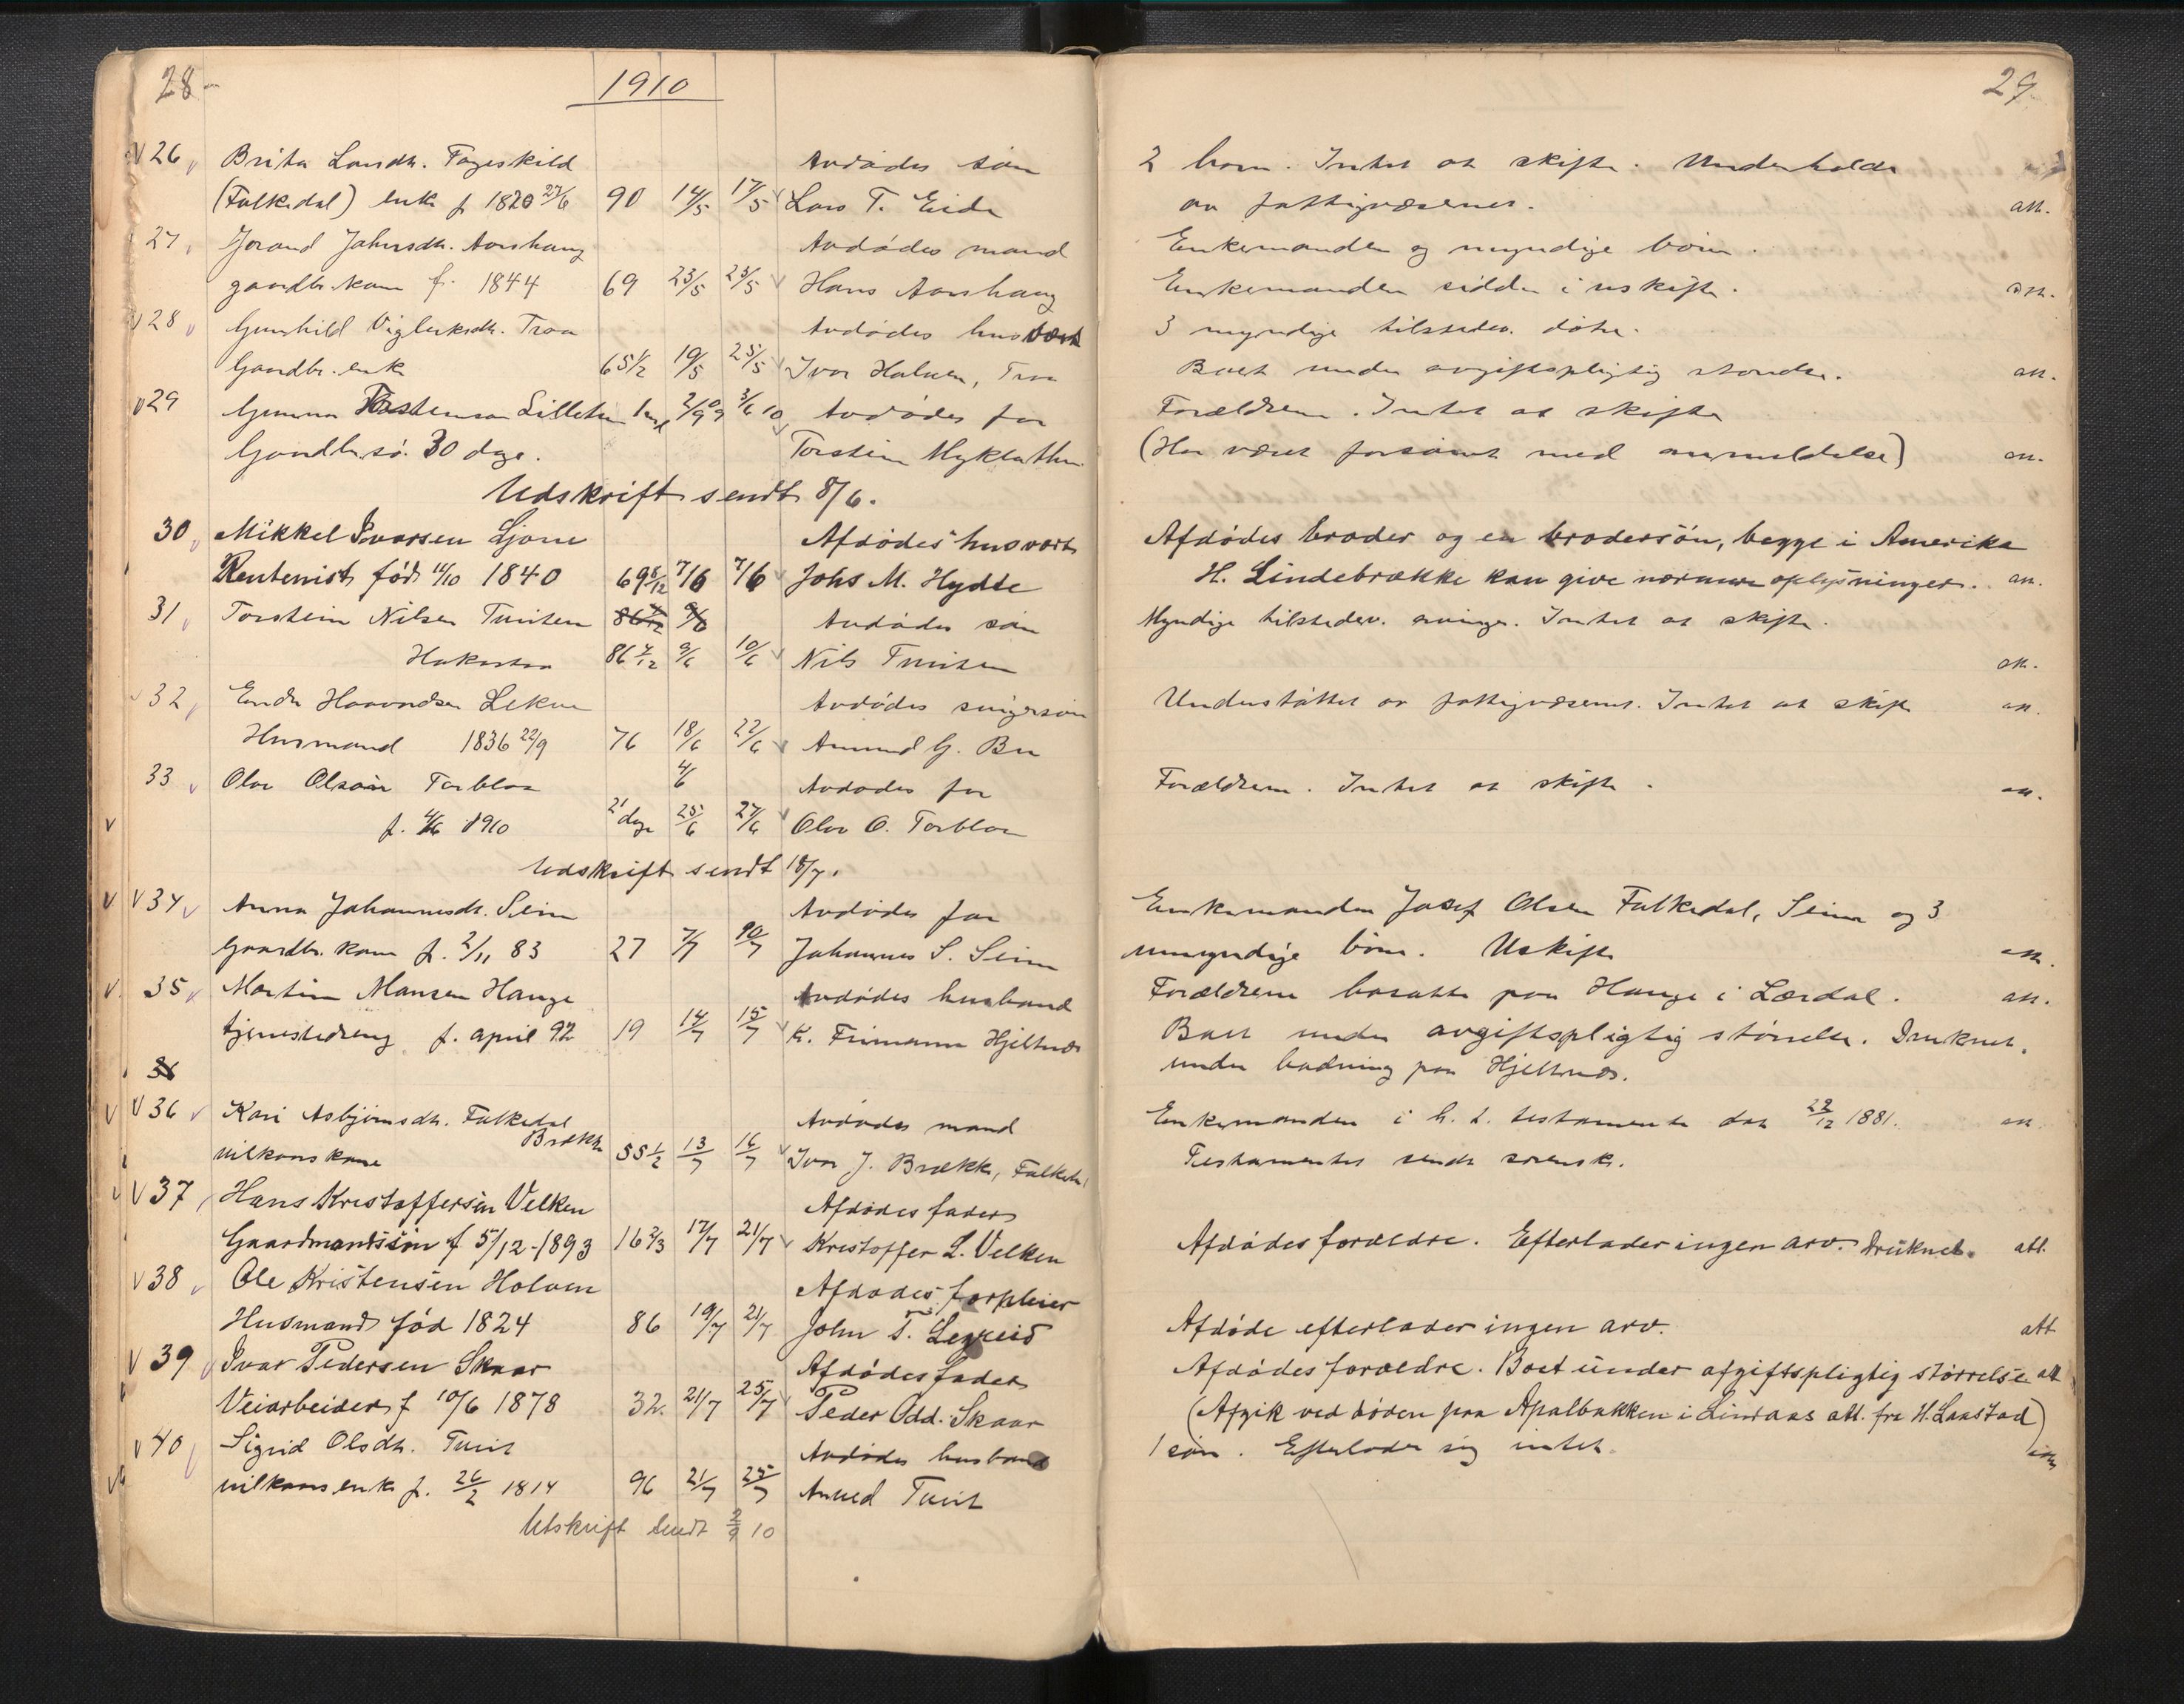 28
1910
26 Brita Larsdtr. Fageskild Avdødes søn
(Falkedal) enke f 1820 27/6 90 14/5 17/5 Lars T. Eide
27 Jorand Johnsdtr. Aarshaug Avdødes mand
gaardbr. kone f. 1844 69 23/5 23/5 Hans Aarshaug
28 Gunhild Vigleiksdtr. Traa Avdødes husvært
Gaardbr. enke 65 1/2 19/5 25/5 Ivar Halven, Traa
29 Gunnar Torstensen Lillethun 2/9 09 3/6 10 Avdødes far
Gaardbr. sø. 30 dage. Torstein Myklethun
Udskrift sendt 8/6.
30 Mikkel Ivarsen Ljone Afdødes husvært
Rentenist født 11/10 1840 69 8/12 7/6 7/6 Johs M. Hydle
31 Torstein Nilsen Tuniten 86 7/12 9/6 Avdødes søn
Hakestaa 86 7/12 9/6 10/6 Nils Tuniten
32 Endre Haavardsen Lekve Avdødes svigersøn
Husmand 1836 22/9 76 18/6 22/6 Amund G. Bu
33 Olav Olsøn Torblaa 4/6 Avdødes far
f. 4/6 1910 21 dage 25/6 27/6 Olav O. Torblaa
Udskrift sendt 18/7.
34 Anna Johannesdtr. Seim Avdødes far
Gaardbr. kone f. 2/11 83 27 7/7 10/7 Johannes S. Seim
35 Martin Mansen Hauge Avdødes husbond
tjenestedreng f. april 92 19 14/7 15/7 K. Frimann Hjeltnes
36
36 Kari Asbjørnsdtr. Falkedal Avdødes mand
Brække
vilkaarskone 55 1/2 13/7 16/7 Ivar J. Brække, Falkedal
37 Hans Kristoffersen Velken Afdødes fader
Gaardmandssøn f 5/12-1893 16 2/3 17/7 21/7 Kristoffer L. Velken
38 Ole Kristensen Holven Afdødes forpleier
Husmand fød 1824 86 19/7 21/7 John T. Legreid
39 Ivar Pedersen Skaar Afdødes fader
Veiarbeider f 10/6 1878 32. 21/7 25/7 Peder Odd. Skaar
40 Sigrid Olsdtr. Tveit Avdødes husbond
vilkaarsenke f. 26/2 1814 96 21/7 25/7 Tveit
Utskrift sendt 2/9 10
29
2 børn. Intet at skifte. Underholdt
av fattigvæsenet. att.
Enkemanden og myndige børn.
Enkemanden sidder i uskifte. att.
3 myndige tilstedev. døtre.
Boet under avgiftspligtig størrelse. att.
Forældrene. Intet at skifte
(Har været forsømt med anmeldelse) att.
Afdødes broder og en brodersøn, begge i Amerika
H. Lindebrække kan give nærmere oplysninger. att.
Myndige tilstedev. arvinger. Intet at skifte.
att.
Understøttet av fattigvæsenet. Intet at skifte att.
Forældrene. Intet at skifte. att.
Enkemanden Josef Olsen Falkedal, Seim og 3
umyndige børn. Uskifte att.
Forældrene bosatte paa Hauge i Lærdal. att.
Boet under avgiftspligtig størrelse. Druknet
under badning paa Hjeltnes.
Enkemanden i h. t. testamente dat 22/12 1881. att.
Testamentet sendt sorenskr.
Afdødes forældre. Efterlader ingen arv. Druknet. att.
Afdøde efterlader ingen arv. att
Afdødes forældre. Boet under afgiftspligtig størrelse att
(Afgik ved døden paa Apalbakken i Lindaas att. fra H. Laastad)
1 søn. Efterlader sig intet.